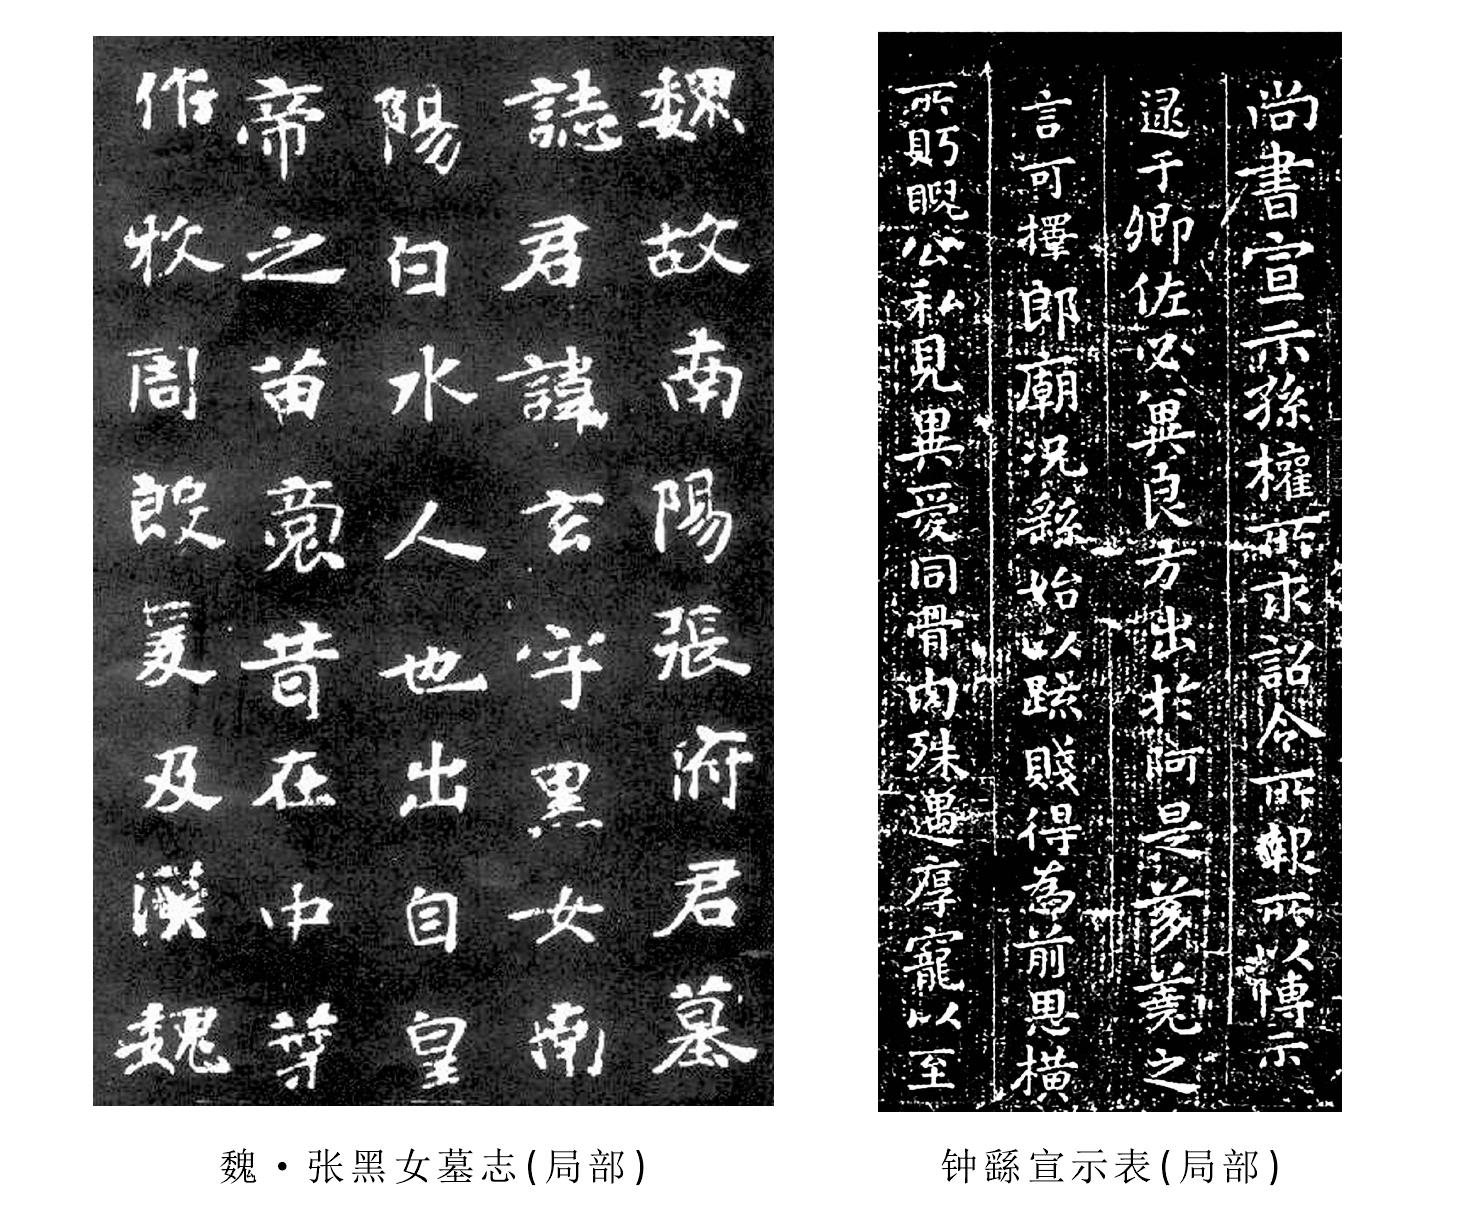 魏故南陽張府君墓
誌君諱玄字黑女南
陽白水人也出自皇
帝之苗裔昔在中葉
作牧周殷爰及漢魏
魏·张黑女墓志(局部)
尚書宣示孫權所求詔令所報所以博示
逮于卿佐必冀良方出於阿是芻蕘之
言可擇郎廟況繇始以疏賤得為前恩橫
所貺睨公私見異愛同骨肉殊遇厚寵以至
钟繇宣示表(局部)